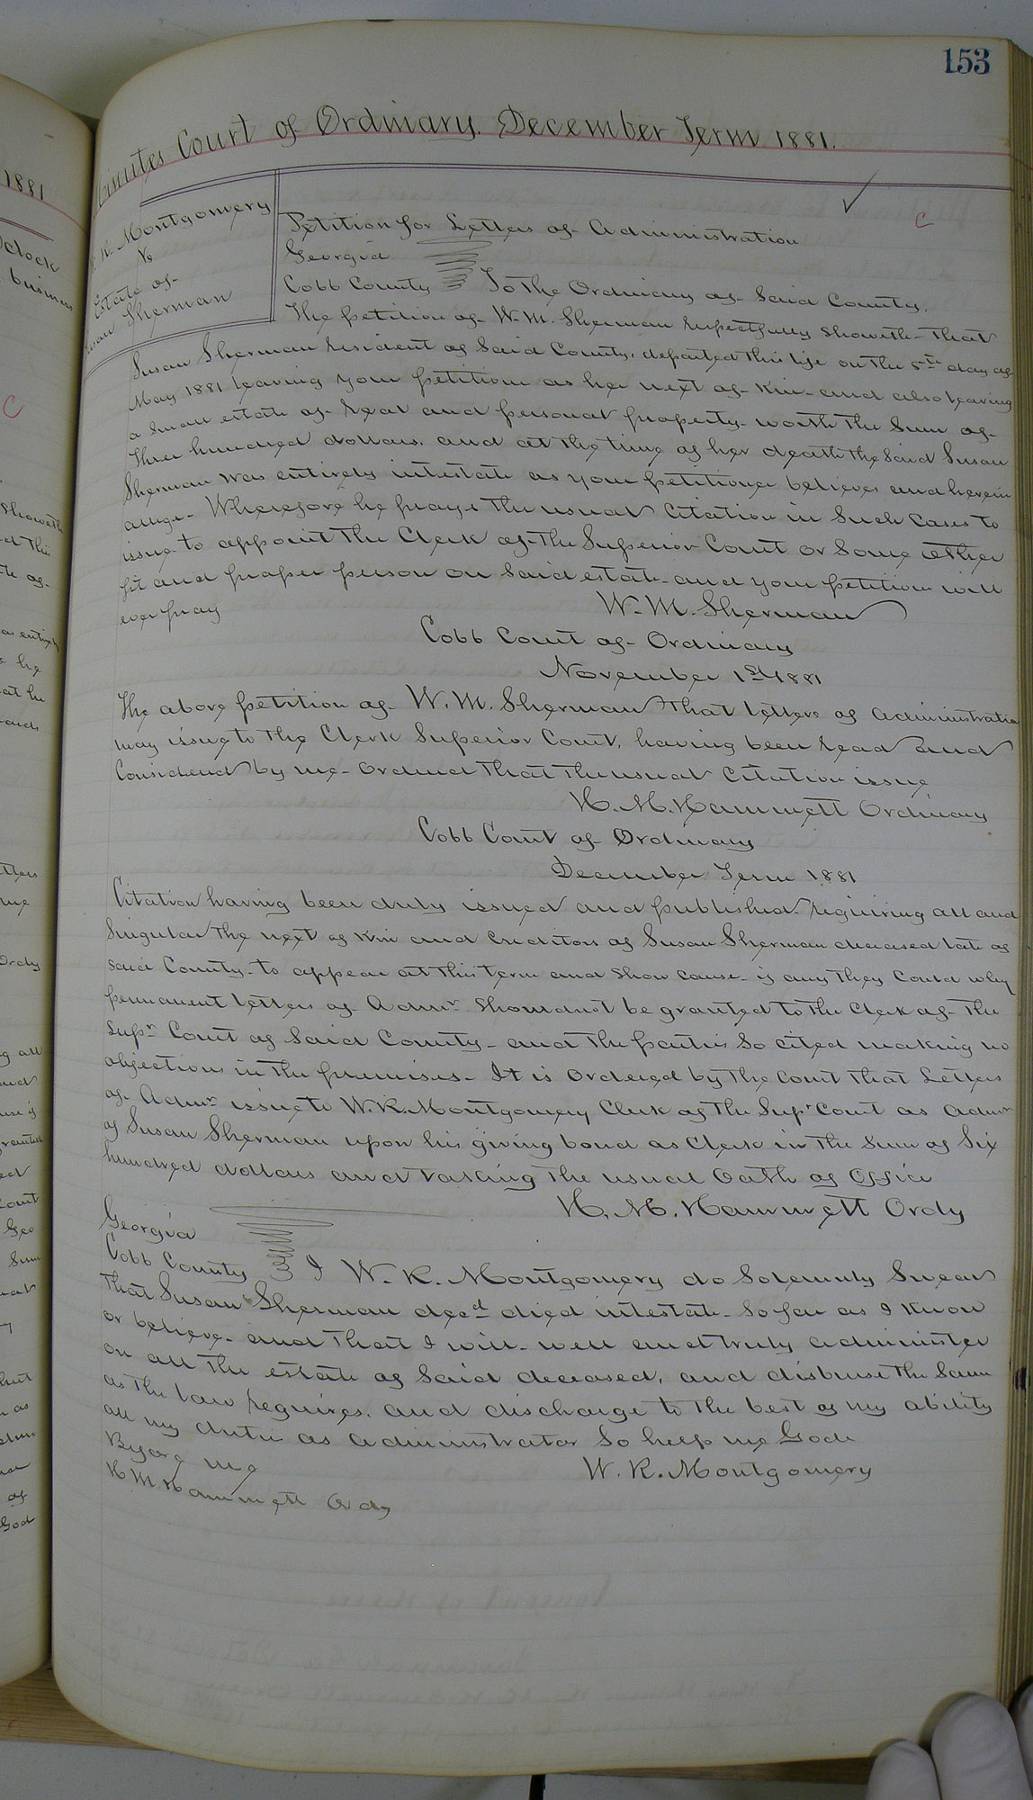 153
Minutes Court of Ordinary. December Term 1881.
W. R. Montgomery
vs
Estate of
Susan Sherman
Petition for Letters of Administration
Georgia
Cobb County To the Ordinary of Said County.
The petition of W. M. Sherman respectfully showeth that
Susan Sherman resident of Said County, departed this life on the 5th day of
May 1881 leaving your petitioner as her next of Kin and also leaving
a small estate of real and personal property worth the Sum of
Three hundred dollars. and at the time of her death the said Susan
Sherman was entirely intestate as your petitioner believes and herein
alleges. Wherefore he prays the usual Citation in Such Cases to
issue to appoint the Clerk of the Superior Court or Some other
fit and proper person on Said estate and your petitioner will
ever pray W. M. Sherman
Cobb Court of Ordinary
November 1st 1881
The above petition of W. M. Sherman that letters of administration
may issue to the Clerk Superior Court, having been read and
Considered by me Ordered that the usual Citation issue
H. M. Hammett Ordinary
Cobb Court of Ordinary
December Term 1881
Citation having been duly issued and published requiring all and
Singular the next of Kin and Creditors of Susan Sherman deceased late of
said County to appear at this term and show cause if any they Could why
permanent letters of Admr should not be granted to the Clerk of the
Supr Court of Said County and the parties So cited making no
objections in the premises. It is Ordered by the Court that Letters
of Admr issue to W. R. Montgomery Clerk of the Supr Court as Admr
of Susan Sherman upon his giving bond as Clerk in the sum of Six
hundred dollars and taking the usual Oath of Office
H. M. Hammett Ordy
Georgia
Cobb County I W. R. Montgomery do Solemnly Swear
that Susan Sherman decd died intestate So far as I know
or believe and that I will well and truly administer
on all the estate of Said deceased, and disburse the Same
as the law requires, and discharge to the best of my ability
all my duties as administrator So help me God
Before me W. R. Montgomery
H M Hammett Ordy